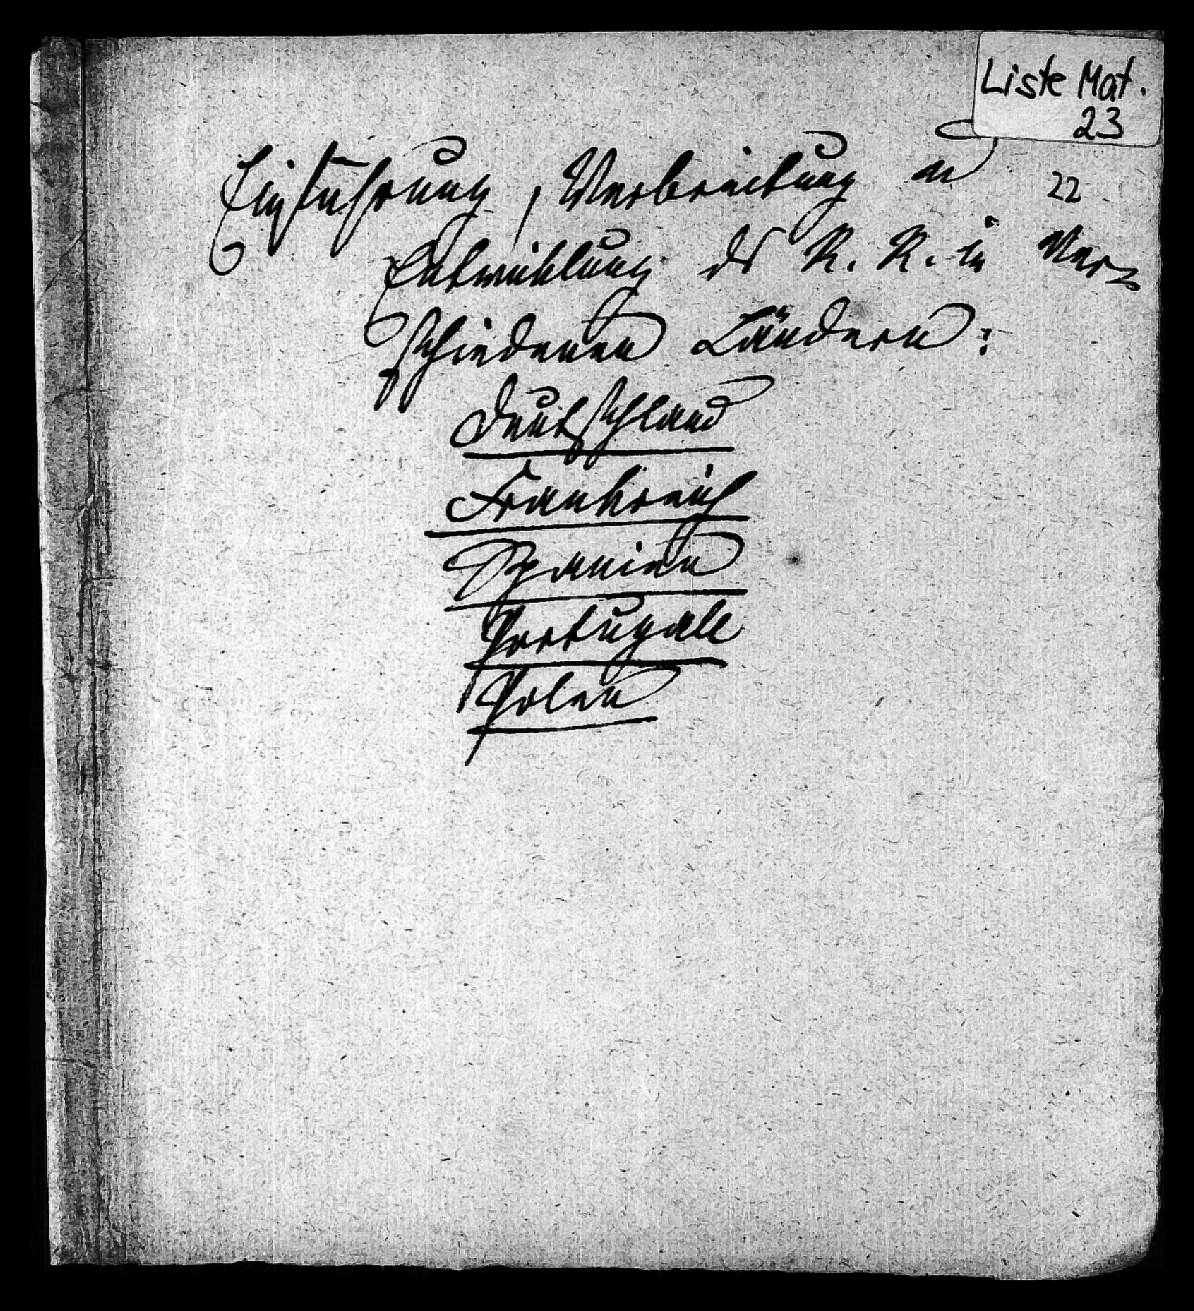 Liste Mat.
23
22
Einführung, Verbreitung u
Entwicklung des R. R. in Ver-
schiedenen Ländern:
Deutschland
Frankreich
Spanien
Portugall
Polen